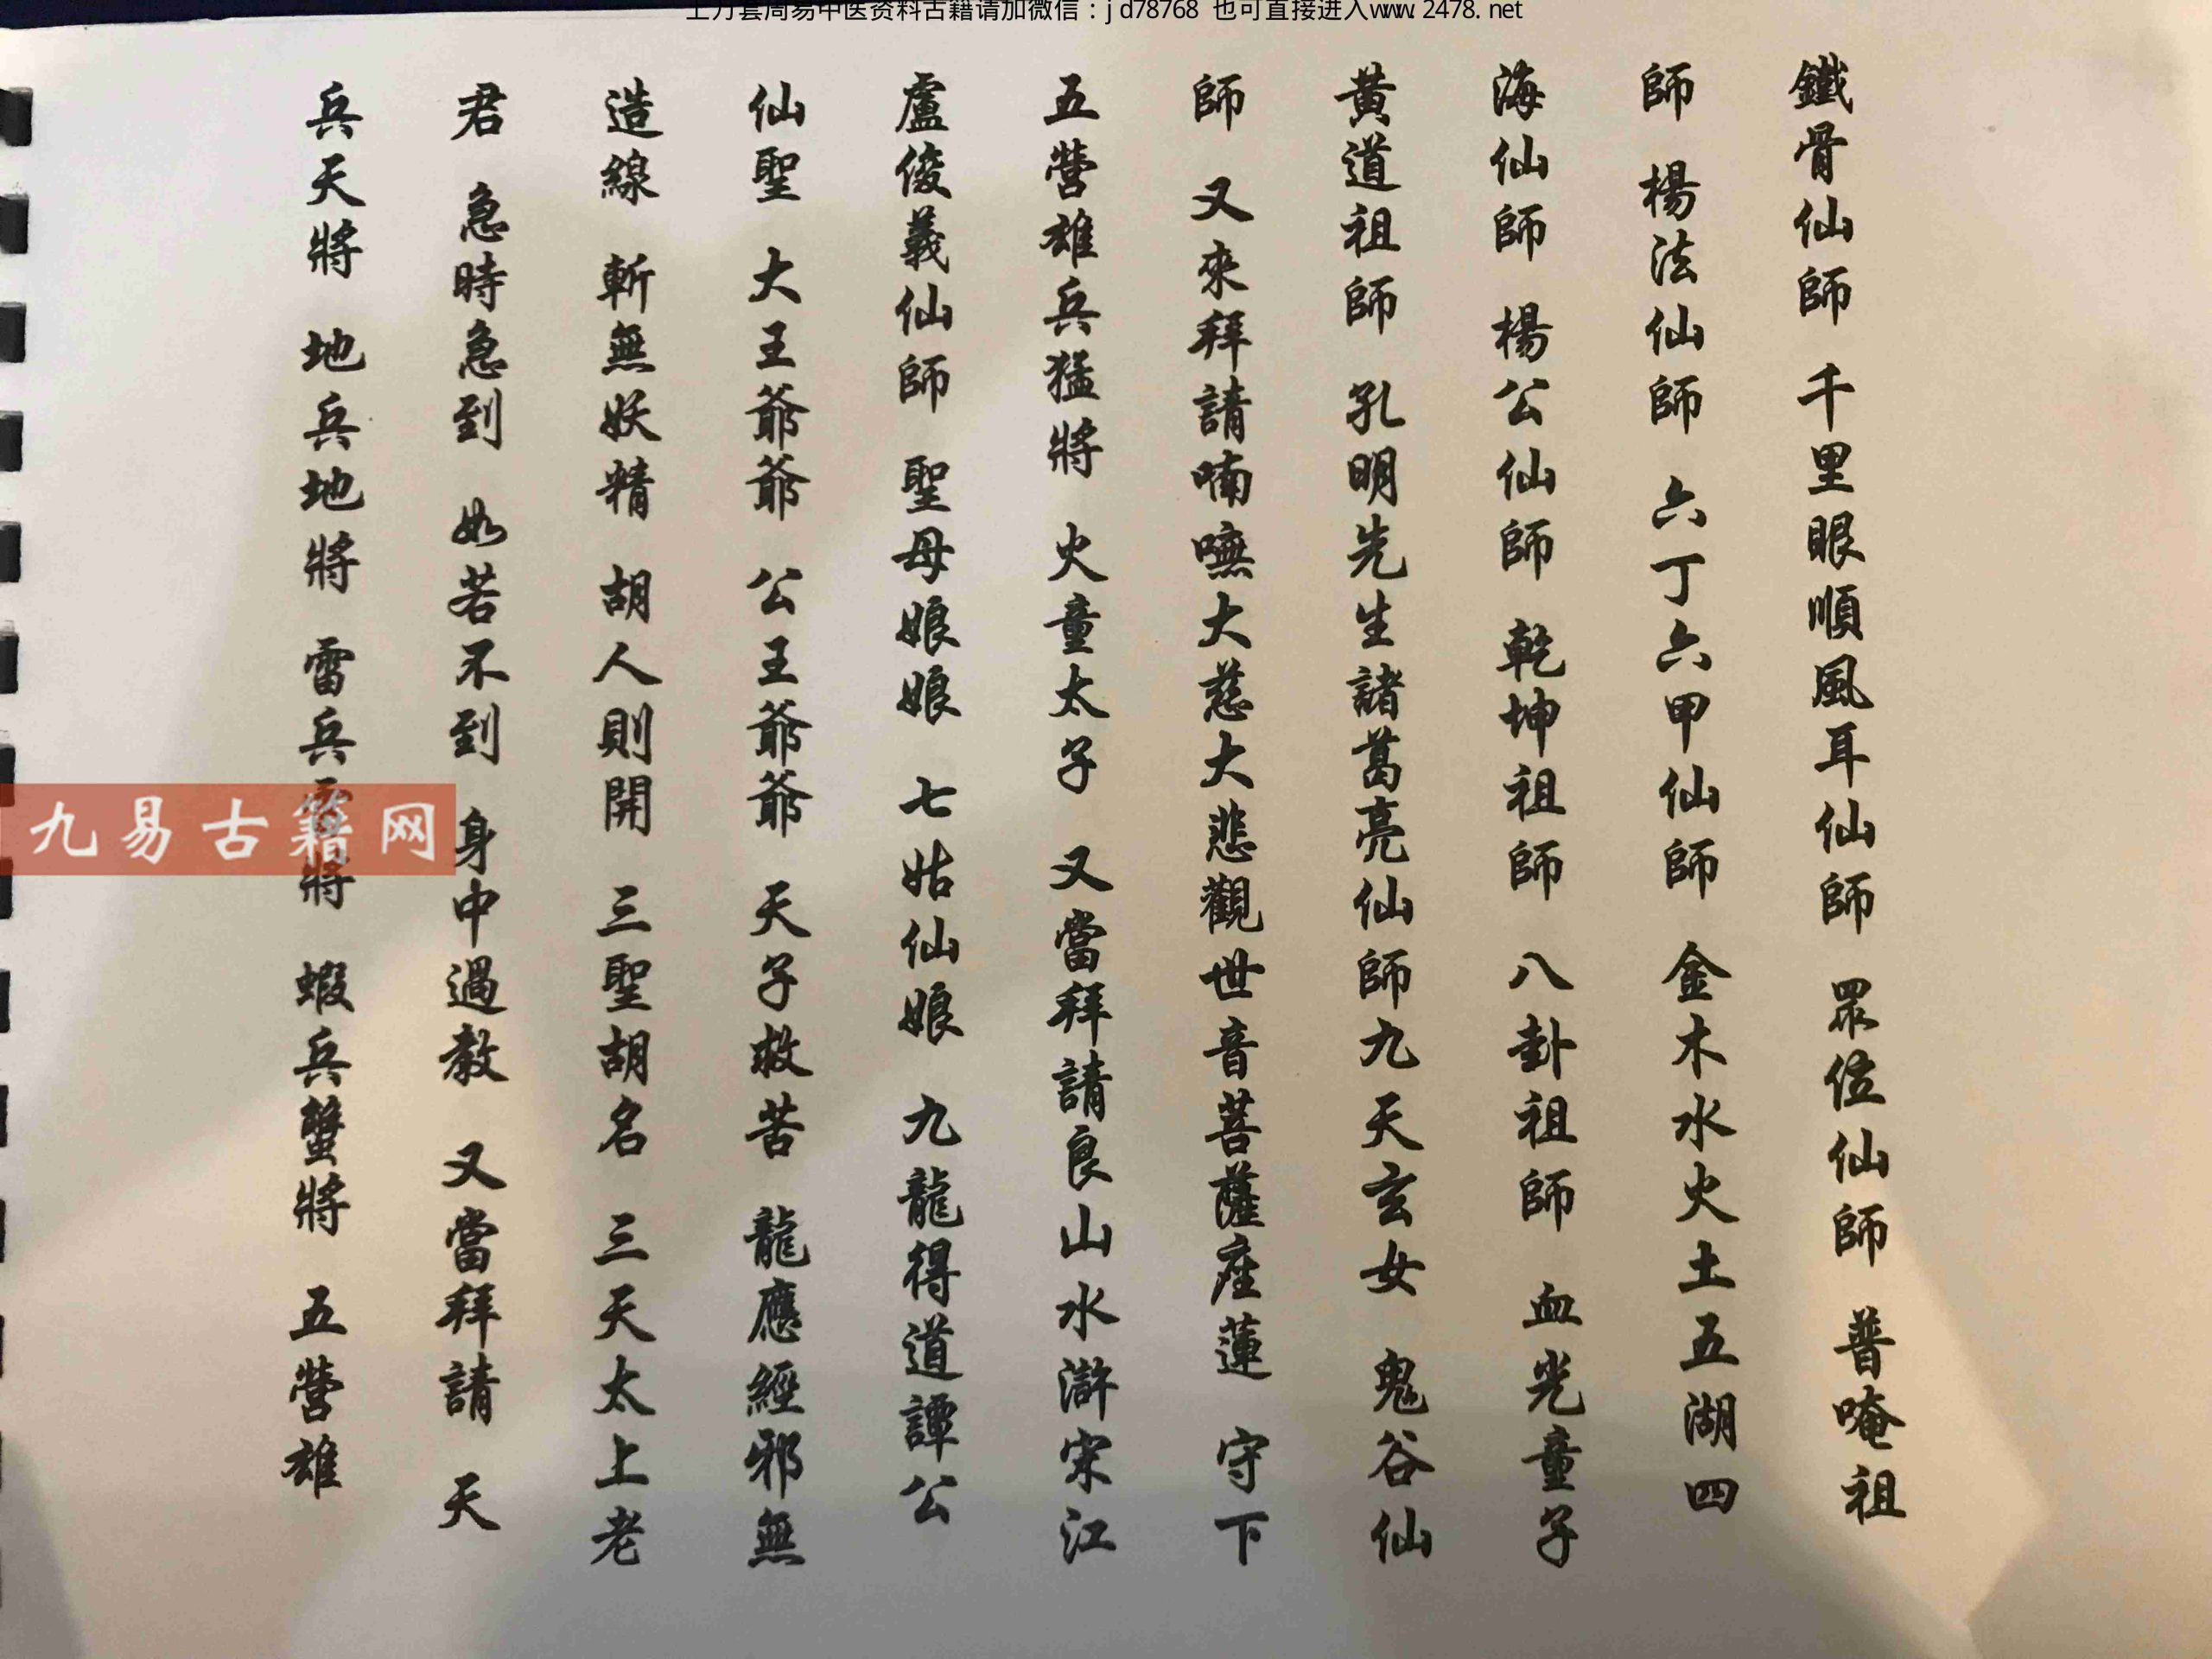 上万套周易中医资料古籍请加微信：jd78768 也可直接进入www.2478.net
鐵骨仙師 千里眼順風耳仙師 眾位仙師 普唵祖
師 楊法仙師 六丁六甲仙師 金木水火土五湖四
海仙師 楊公仙師 乾坤祖師 八卦祖師 血光童子
黃道祖師 孔明先生諸葛亮仙師九天玄女 鬼谷仙
師 又來拜請喃嘸大慈大悲觀世音菩薩座蓮 守下
五營雄兵猛將 火童太子 又當拜請良山水滸宋江
盧俊義仙師 聖母娘娘 七姑仙娘 九龍得道譚公
仙聖 大王爺爺 公王爺爺 天子救苦 龍應經邪無
造線 斬無妖精 胡人則開 三聖胡名 三天太上老
君 急時急到 如若不到 身中過教 又當拜請 天
兵天將 地兵地將 雷兵將 蝦兵蟹將 五營雄
九易古籍网